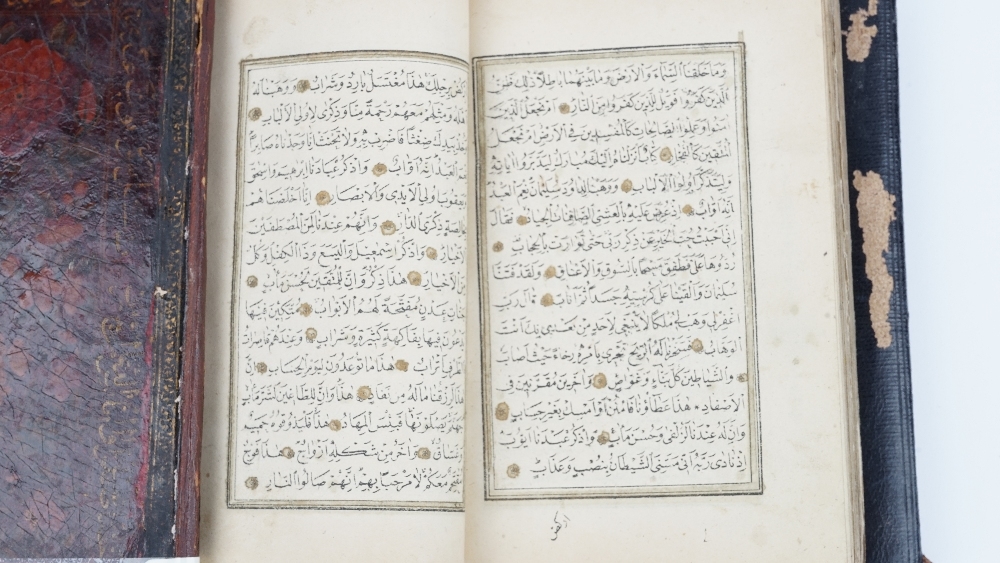 وَمَا خَلَقْنَا السَّمَاءَ وَالْأَرْضَ وَمَا بَيْنَهُمَا بَاطِلًا ذَلِكَ ظَنُّ
الَّذِينَ كَفَرُوا فَوَيْلٌ لِلَّذِينَ كَفَرُوا مِنَ النَّارِ أَمْ نَجْعَلُ الَّذِينَ
آمَنُوا وَعَمِلُوا الصَّالِحَاتِ كَالْمُفْسِدِينَ فِي الْأَرْضِ أَمْ نَجْعَلُ
الْمُتَّقِينَ كَالْفُجَّارِ كِتَابٌ أَنْزَلْنَاهُ إِلَيْكَ مُبَارَكٌ لِيَدَّبَّرُوا آيَاتِهِ
وَلِيَتَذَكَّرَ أُولُوا الْأَلْبَابِ وَوَهَبْنَا لِدَاوُدَ سُلَيْمَانَ نِعْمَ الْعَبْدُ
إِنَّهُ أَوَّابٌ إِذْ عُرِضَ عَلَيْهِ بِالْعَشِيِّ الصَّافِنَاتُ الْجِيَادُ فَقَالَ
إِنِّي أَحْبَبْتُ حُبَّ الْخَيْرِ عَنْ ذِكْرِ رَبِّي حَتَّى تَوَارَتْ بِالْحِجَابِ
رُدُّوهَا عَلَيَّ فَطَفِقَ مَسْحًا بِالسُّوقِ وَالْأَعْنَاقِ وَلَقَدْ فَتَنَّا
سُلَيْمَانَ وَأَلْقَيْنَا عَلَى كُرْسِيِّهِ جَسَدًا ثُمَّ أَنَابَ قَالَ رَبِّ
اغْفِرْ لِي وَهَبْ لِي مُلْكًا لَا يَنْبَغِي لِأَحَدٍ مِنْ بَعْدِي إِنَّكَ أَنْتَ
الْوَهَّابُ فَسَخَّرْنَا لَهُ الرِّيحَ تَجْرِي بِأَمْرِهِ رُخَاءً حَيْثُ أَصَابَ
وَالشَّيَاطِينَ كُلَّ بَنَّاءٍ وَغَوَّاصٍ وَآخَرِينَ مُقَرَّنِينَ فِي
الْأَصْفَادِ هَذَا عَطَاؤُنَا فَامْنُنْ أَوْ أَمْسِكْ بِغَيْرِ حِسَابٍ
وَإِنَّ لَهُ عِنْدَنَا لَزُلْفَى وَحُسْنَ مَآبٍ وَاذْكُرْ عَبْدَنَا أَيُّوبَ
إِذْ نَادَى رَبَّهُ أَنِّي مَسَّنِيَ الشَّيْطَانُ بِنُصْبٍ وَعَذَابٍ
اركض
ارْكُضْ بِرِجْلِكَ هَذَا مُغْتَسَلٌ بَارِدٌ وَشَرَابٌ وَوَهَبْنَا لَهُ
أَهْلَهُ وَمِثْلَهُمْ مَعَهُمْ رَحْمَةً مِنَّا وَذِكْرَى لِأُولِي الْأَلْبَابِ
وَخُذْ بِيَدِكَ ضِغْثًا فَاضْرِبْ بِهِ وَلَا تَحْنَثْ إِنَّا وَجَدْنَاهُ صَابِرًا
نِعْمَ الْعَبْدُ إِنَّهُ أَوَّابٌ وَاذْكُرْ عِبَادَنَا إِبْرَهِيمَ وَإِسْحَقَ
وَيَعْقُوبَ أُولِي الْأَيْدِي وَالْأَبْصَارِ إِنَّا أَخْلَصْنَاهُمْ
بِخَالِصَةٍ ذِكْرَى الدَّارِ وَإِنَّهُمْ عِنْدَنَا لَمِنَ الْمُصْطَفَيْنَ
الْأَخْيَارِ وَاذْكُرْ إِسْمَعِيلَ وَالْيَسَعَ وَذَا الْكِفْلِ وَكُلٌّ
مِنَ الْأَخْيَارِ هَذَا ذِكْرٌ وَإِنَّ لِلْمُتَّقِينَ لَحُسْنَ مَآبٍ
جَنَّاتِ عَدْنٍ مُفَتَّحَةً لَهُمُ الْأَبْوَابُ مُتَّكِئِينَ فِيهَا
يَدْعُونَ فِيهَا بِفَاكِهَةٍ كَثِيرَةٍ وَشَرَابٍ وَعِنْدَهُمْ قَاصِرَاتُ
الطَّرْفِ أَتْرَابٌ هَذَا مَا تُوعَدُونَ لِيَوْمِ الْحِسَابِ إِنَّ
هَذَا لَرِزْقُنَا مَا لَهُ مِنْ نَفَادٍ هَذَا وَإِنَّ لِلطَّاغِينَ لَشَرَّ مَآبٍ
جَهَنَّمَ يَصْلَوْنَهَا فَبِئْسَ الْمِهَادُ هَذَا فَلْيَذُوقُوهُ حَمِيمٌ
وَغَسَّاقٌ وَآخَرُ مِنْ شَكْلِهِ أَزْوَاجٌ هَذَا فَوْجٌ
مُقْتَحِمٌ مَعَكُمْ لَا مَرْحَبًا بِهِمْ إِنَّهُمْ صَالُوا النَّارِ